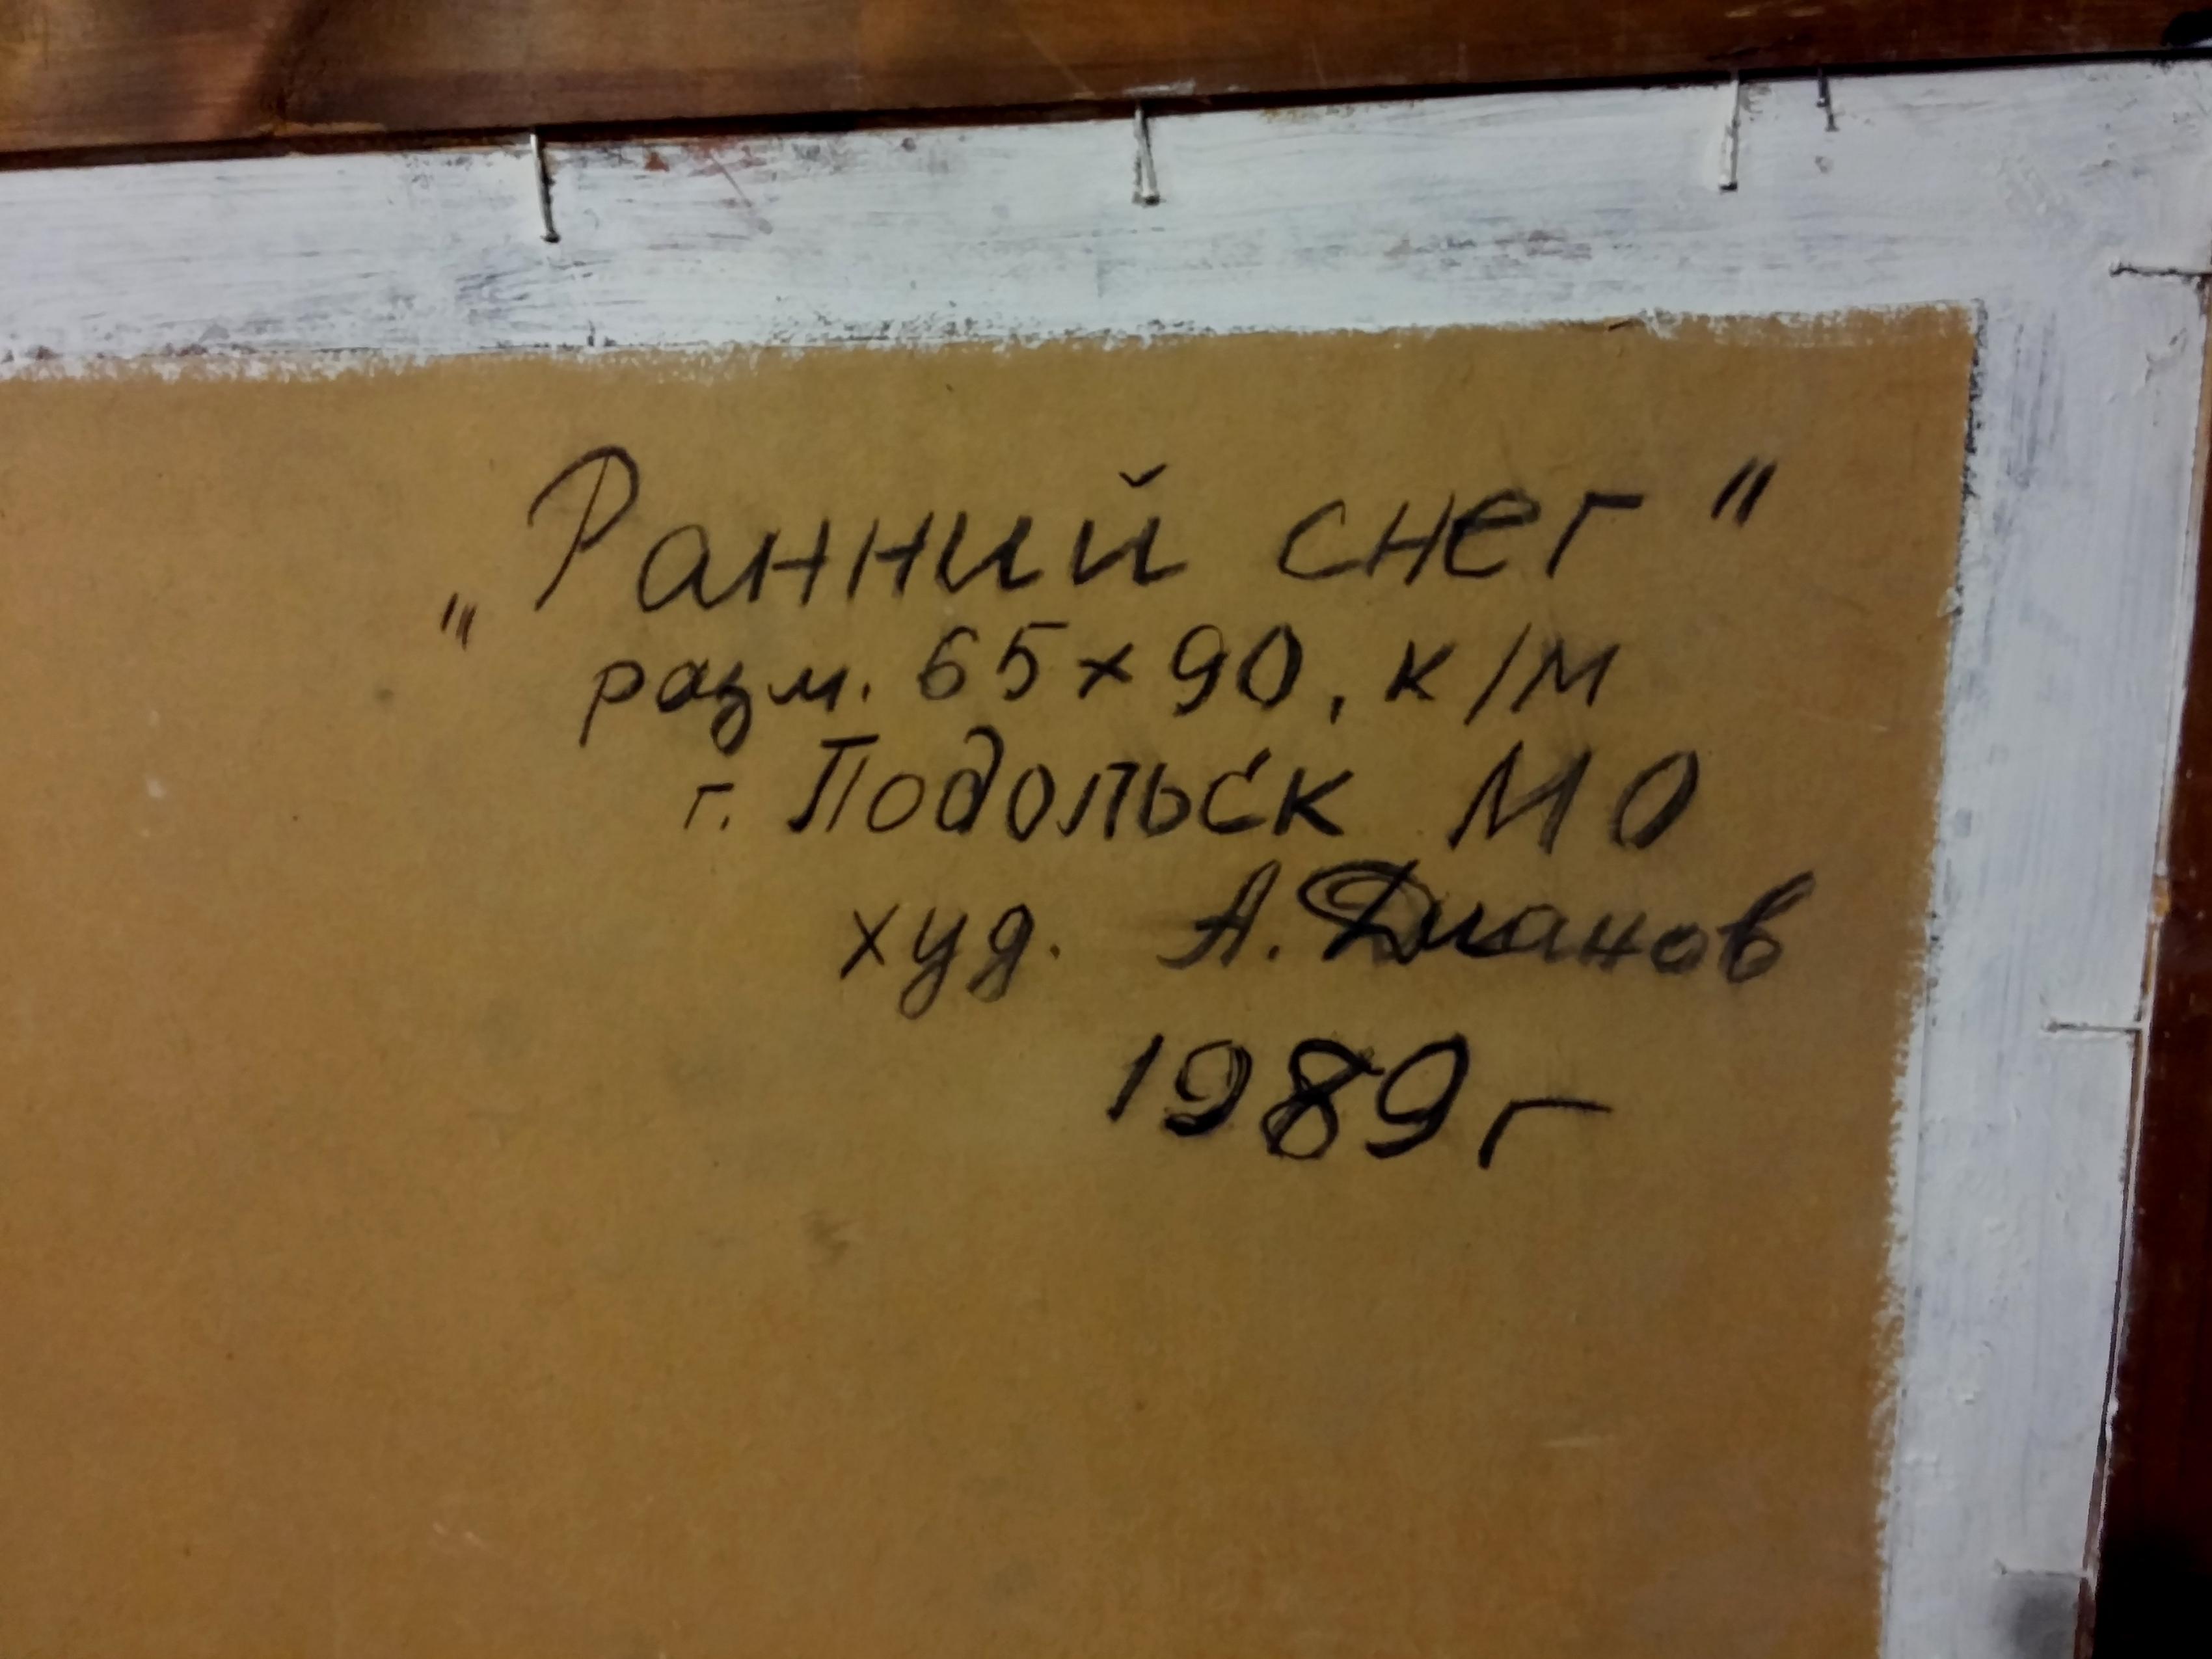 „Ранний снег"
разм. 65×90, к/м
г. Подольск МО
худ. А. Дианов
1989г